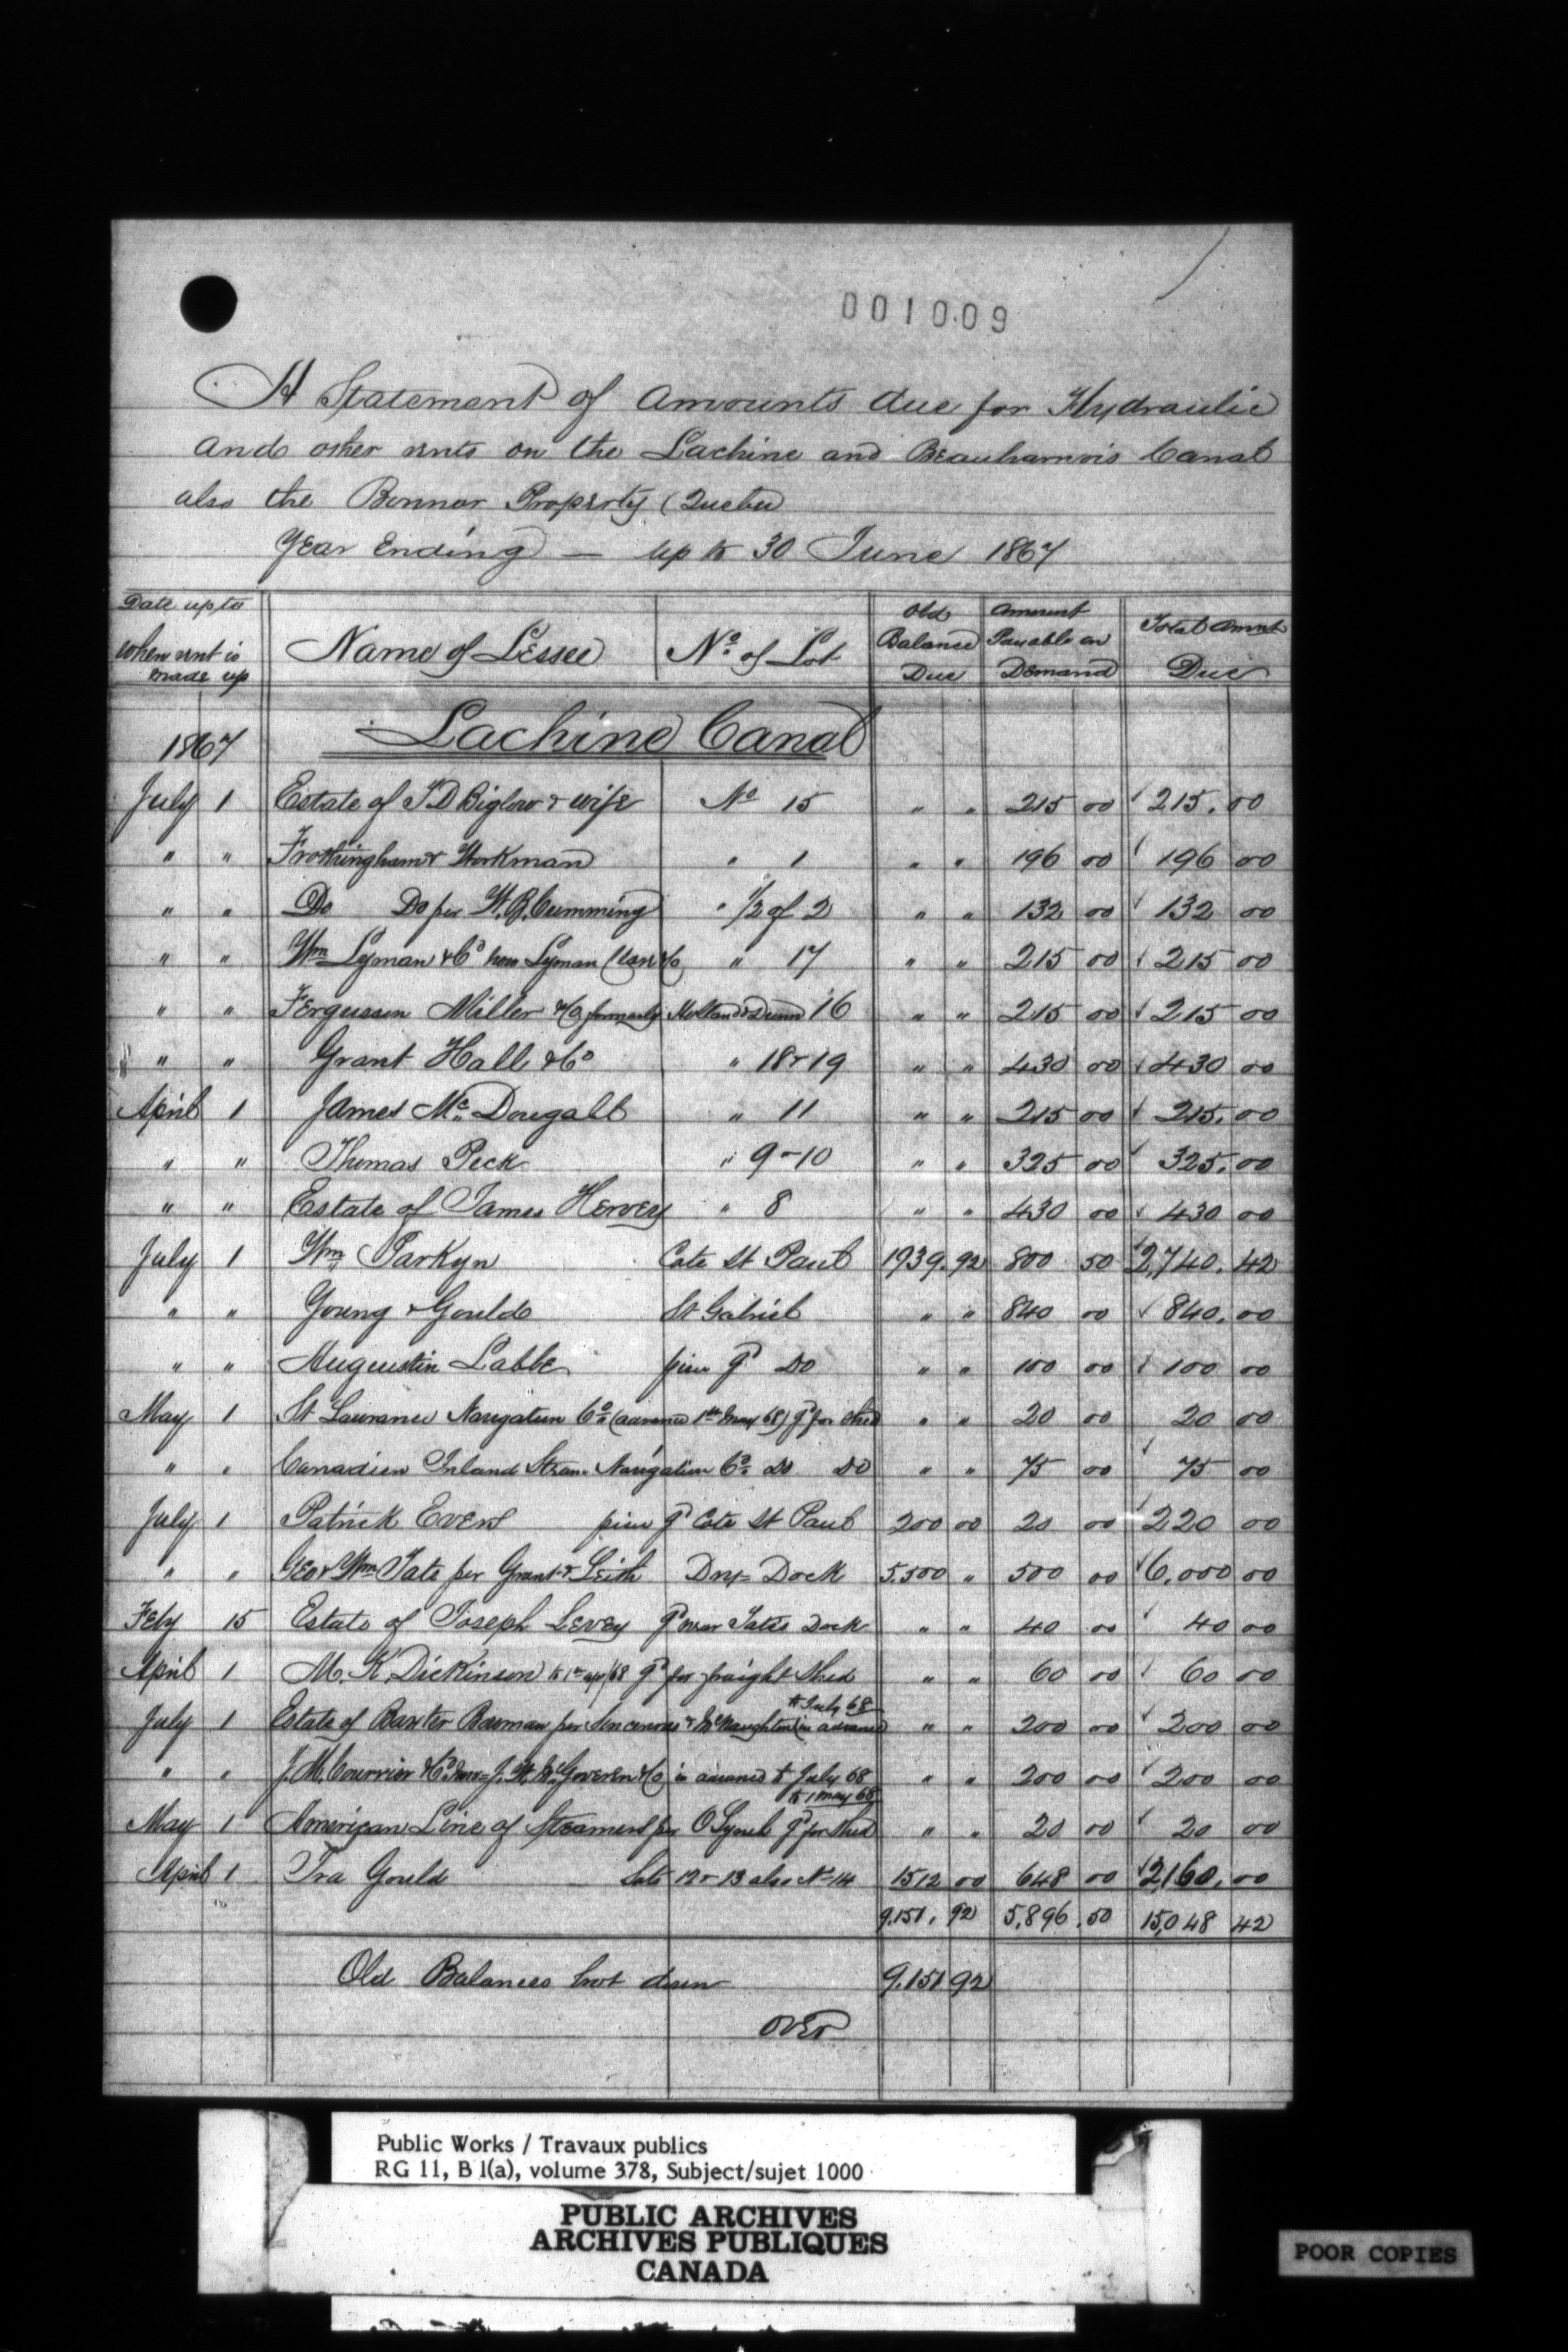 001009
A Statement of Amounts due for Hydraulic
and other rents on the Lachine and Beauharnois Canal
also the Bonner Property (Quebec
Year Ending — up to 30 June 1867
Date up to when rent is made up | Name of Lessee | No. of Lot | Old Balance Due | Amount Payable on Demand | Total Amnt Due
1867 Lachine Canal
July 1 Estate of J D Biglow & wife No 15 " " 215 00 215.00
" " Frothingham & Workman " 1 " " 196 00 196 00
" " Do Do per W. B. Cumming " 1/2 of 2 " " 132 00 132 00
" " Wm Lyman & Co now Lyman Clare & Co " 17 " " 215 00 215 00
" " Fergusson Miller & Co formerly Holland & Dunn 16 " " 215 00 215 00
" " Grant Hall & Co " 18 & 19 " " 430 00 430 00
April 1 James McDougall " 11 " " 215 00 215.00
" " Thomas Peck " 9-10 " " 325 00 325.00
" " Estate of James Hervey " 8 " " 430 00 430 00
July 1 Wm Parkyn Cote St Paul 1939.92 800 50 2,740.42
" " Young & Gould St Gabriel " " 840 00 840.00
" " Augustin Labbe Do " " 100 00 100 00
May 1 St Lawrance Navigation Co (advance 1st May 68) gd for shed " " 20 00 20 00
" " Canadien Inland Steam Navigation Co Do Do " " 75 00 75 00
July 1 Patrick Evers gd Cote St Paul 200 00 20 00 220 00
" " Geo & Wm Tate per Grant & Leith Dry-Dock 5,500 " 500 00 6,000 00
Feby 15 Estate of Joseph Levey gd near Tates Dock " " 40 00 40 00
April 1 M. K. Dickinson to 1st apl/68 gd for freight shed " " 60 00 60 00
July 1 Estate of Baxter Bowman per & McNaughton (in advance to July 68 " " 200 00 200 00
" " J. M. Courrier & Co now J. W. McGoveren & Co in advance to July 68 " " 200 00 200 00
May 1 American Line of Steamers per O Lynch gd for shed to 1 May 68 " " 20 00 20 00
April 1 Ira Gould Lots 12 & 13 also No 14 1512 00 648 00 2,160.00
9,151.92 5,896.50 15,048 42
Old Balances brot down 9,151 92
over
Public Works / Travaux publics
RG 11, B 1(a), volume 378, Subject/sujet 1000
PUBLIC ARCHIVES
ARCHIVES PUBLIQUES
CANADA
POOR COPIES